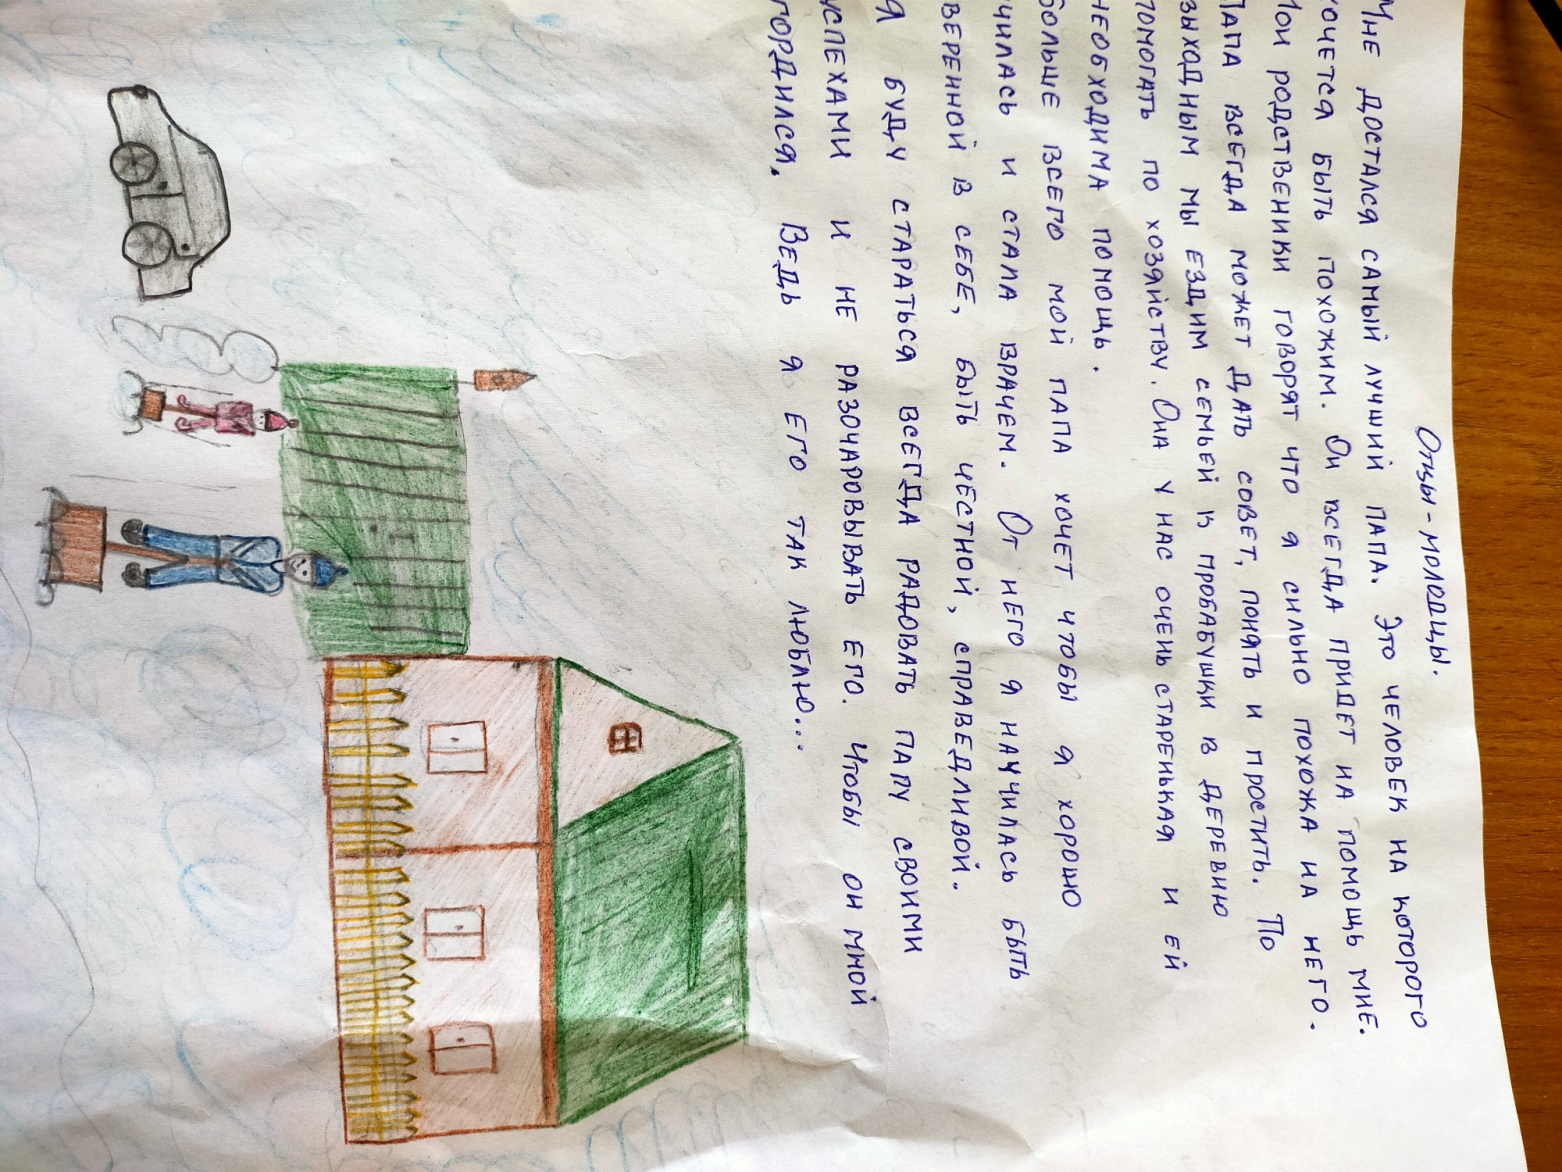 Отцы-молодцы.
Мне достался самый лучший папа. Это человек на которого
хочется быть похожим. Он всегда придет на помощь мне.
Мои родственики говорят что я сильно похожа на него.
Папа всегда может дать совет, понять и простить. По
выходным мы ездим семьей к пробабушки в деревню
помогать по хозяйству. Она у нас очень старенькая и ей
необходима помощь.
Больше всего мой папа хочет чтобы я хорошо
училась и стала врачем. От него я научилась быть
уверенной в себе, быть честной, справедливой.
Я буду стараться всегда радовать папу своими
успехами и не разочаровывать его. Чтобы он мной
гордился. Ведь я его так люблю...